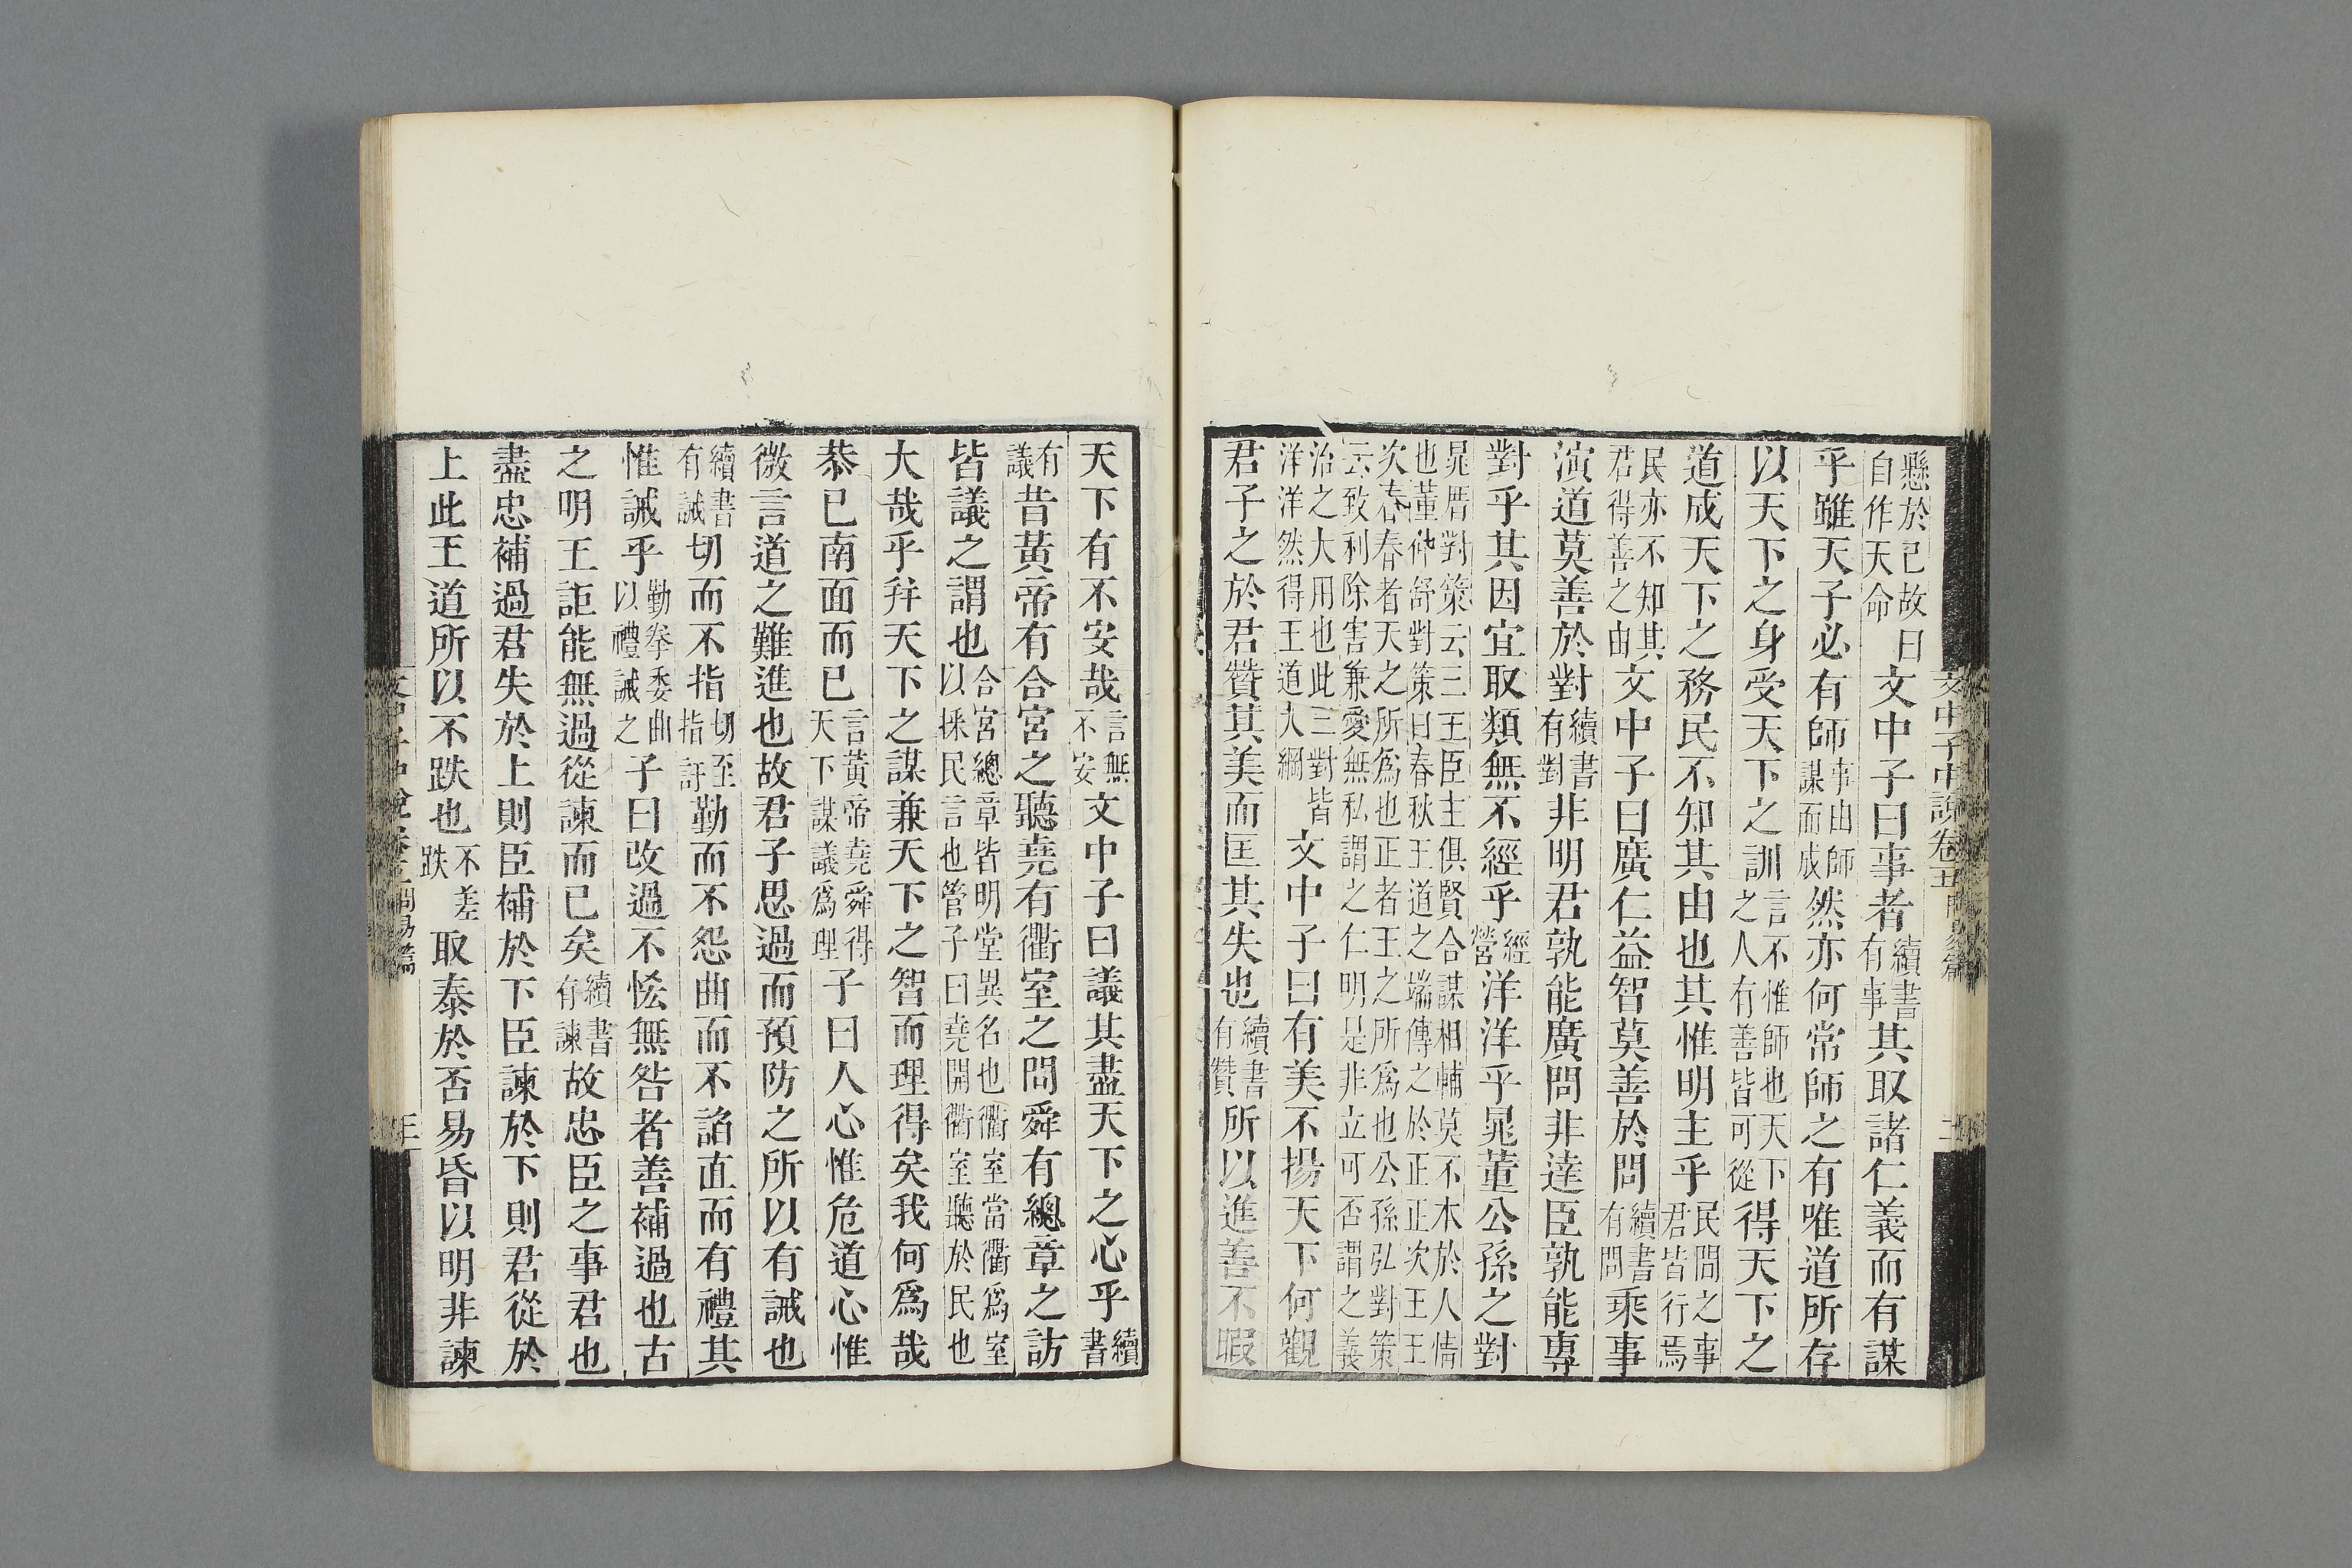 文中子中說卷五問易篇 二
懸於已故曰自作天命文中子曰事者續書有事其取諸仁義而有謀
乎雖天子必有師事由師謀而成然亦何常師之有唯道所存
以天下之身受天下之訓言不惟師也天下之人有善皆可從得天下之
道成天下之務民不知其由也其惟明主乎民間之事君皆行焉
民亦不知其君得善之由文中子曰廣仁益智莫善於問續書有問乘事
演道莫善於對續書有對非明君孰能廣問非達臣孰能專
對乎其因宜取類無不經乎經營洋洋乎晁董公孫之對
晁厝對策云三王臣主俱賢合謀相輔莫不本於人情也董仲舒對策曰春秋王道之端傳之於正正次王王
次春春者天之所爲也正者王之所爲也公孫弘對策云致利除害兼愛無私謂之仁明是非立可否謂之義
治之大用也此三對皆洋洋然得王道大綱文中子曰有美不揚天下何觀
君子之於君贊其美而匡其失也續書有贊所以進善不暇
天下有不安哉言無不安文中子曰議其盡天下之心乎續書
有議昔黃帝有合宮之聽堯有衢室之問舜有總章之訪
皆議之謂也合宮總章皆明堂異名也衢室當衢爲室以採民言也管子曰堯開衢室聽於民也
大哉乎并天下之謀兼天下之智而理得矣我何爲哉
恭已南面而已言黃帝堯舜得天下謀議爲理子曰人心惟危道心惟
微言道之難進也故君子思過而預防之所以有誡也
續書有誡切而不指切至指訐勤而不怨曲而不諂直而有禮其
惟誡乎勤拳委曲以禮誡之子曰改過不恡無咎者善補過也古
之明王詎能無過從諫而已矣續書有諫故忠臣之事君也
盡忠補過君失於上則臣補於下臣諫於下則君從於
上此王道所以不跌也不差跌取泰於否易昏以明非諫
文中子中說卷五問易篇 三